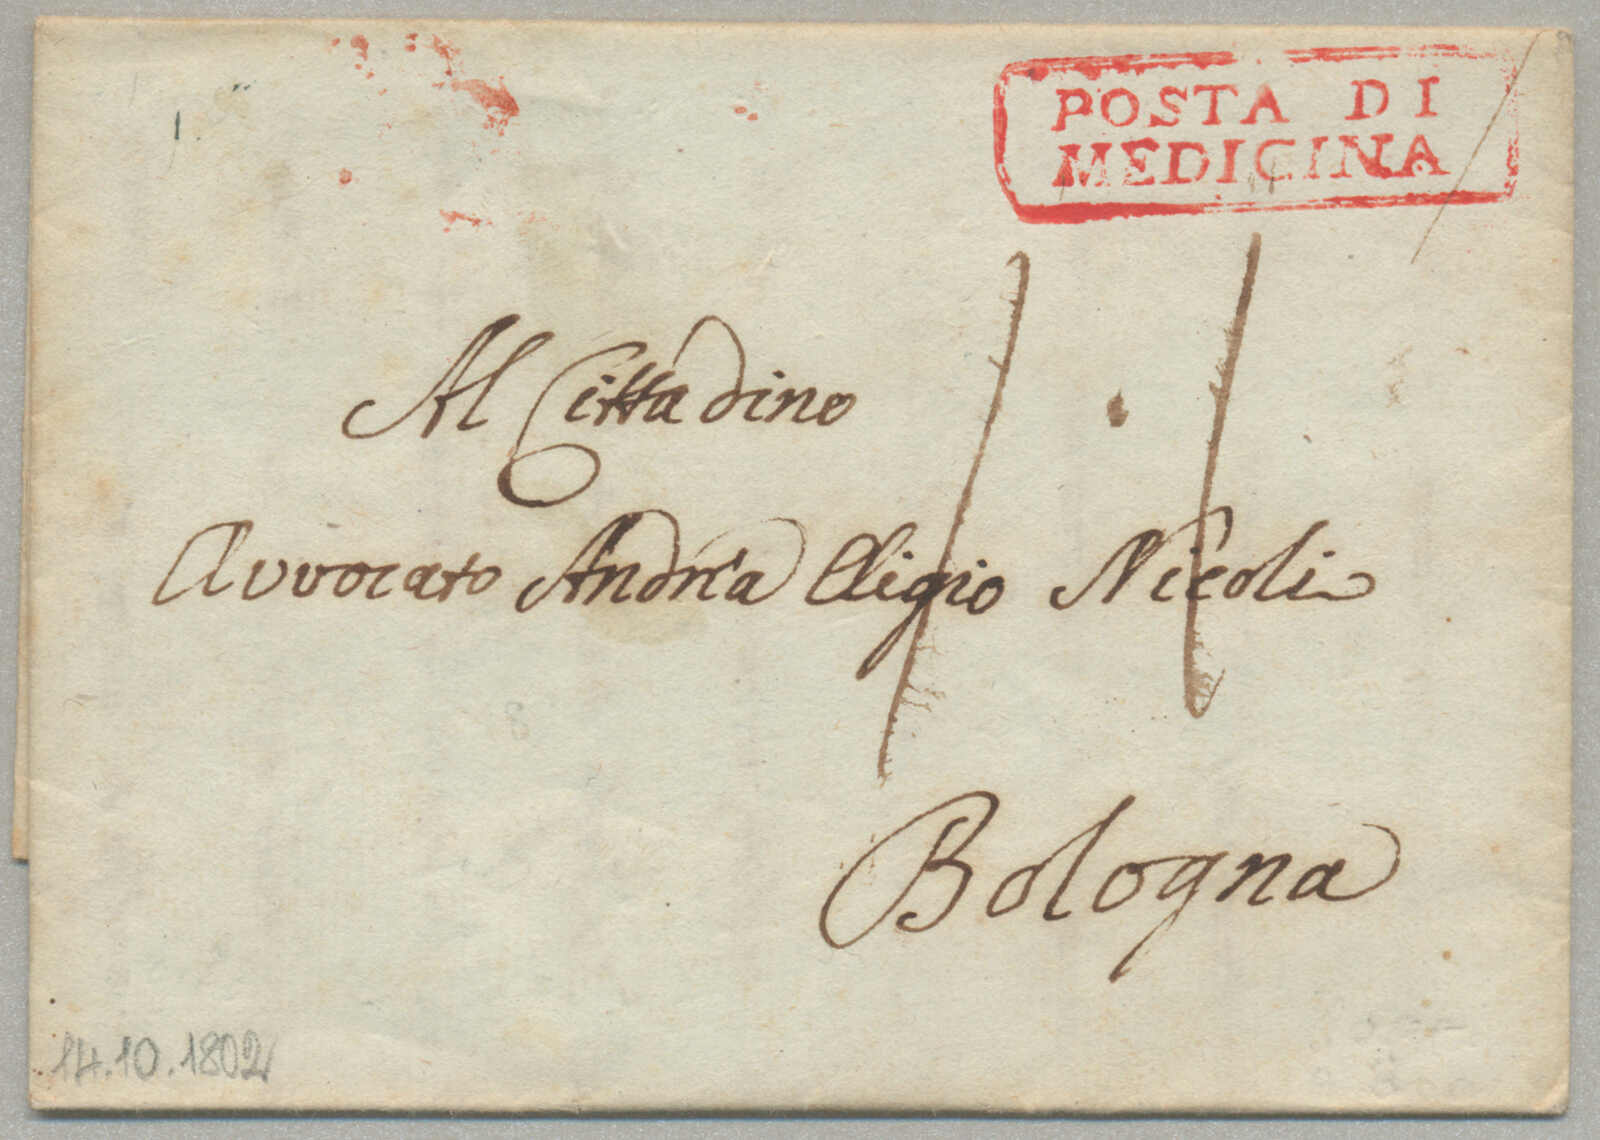 POSTA DI
MEDICINA
Al Cittadino
Avvocato Andrea Eligio Nicoli
Bologna
14.10.1802